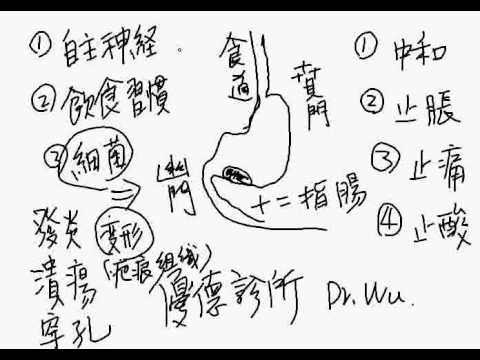 ① 自主神経.
② 飲食習慣
③ 細菌
發炎 変形
(疤痕組織)
潰瘍
穿孔
食道
賁門
幽門
十二指腸
① 中和
② 止脹
③ 止痛
④ 止酸
優德診所 Dr. Wu.